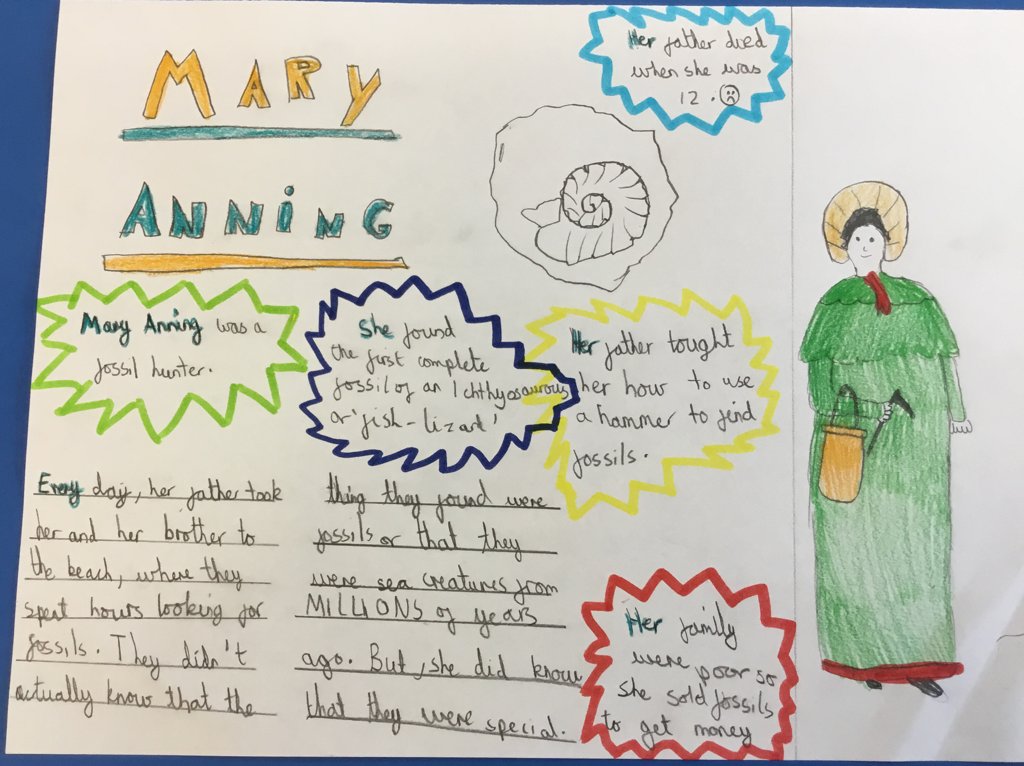 MARY
ANNiNG
Her father died
when she was
12.
Mary Anning was a
fossil hunter.
She found
the first complete
fossil of an Ichthyosaurous
or 'fish-lizard'
Her father tought
her how to use
a hammer to find
fossils.
Every day, her father took
her and her brother to
the beach, where they
spent hours looking for
fossils. They didn't
actually know that the
thing they found were
fossils or that they
were sea creatures from
MILLIONS of years
ago. But, she did know
that they were special.
Her family
were poor so
she sold fossils
to get money